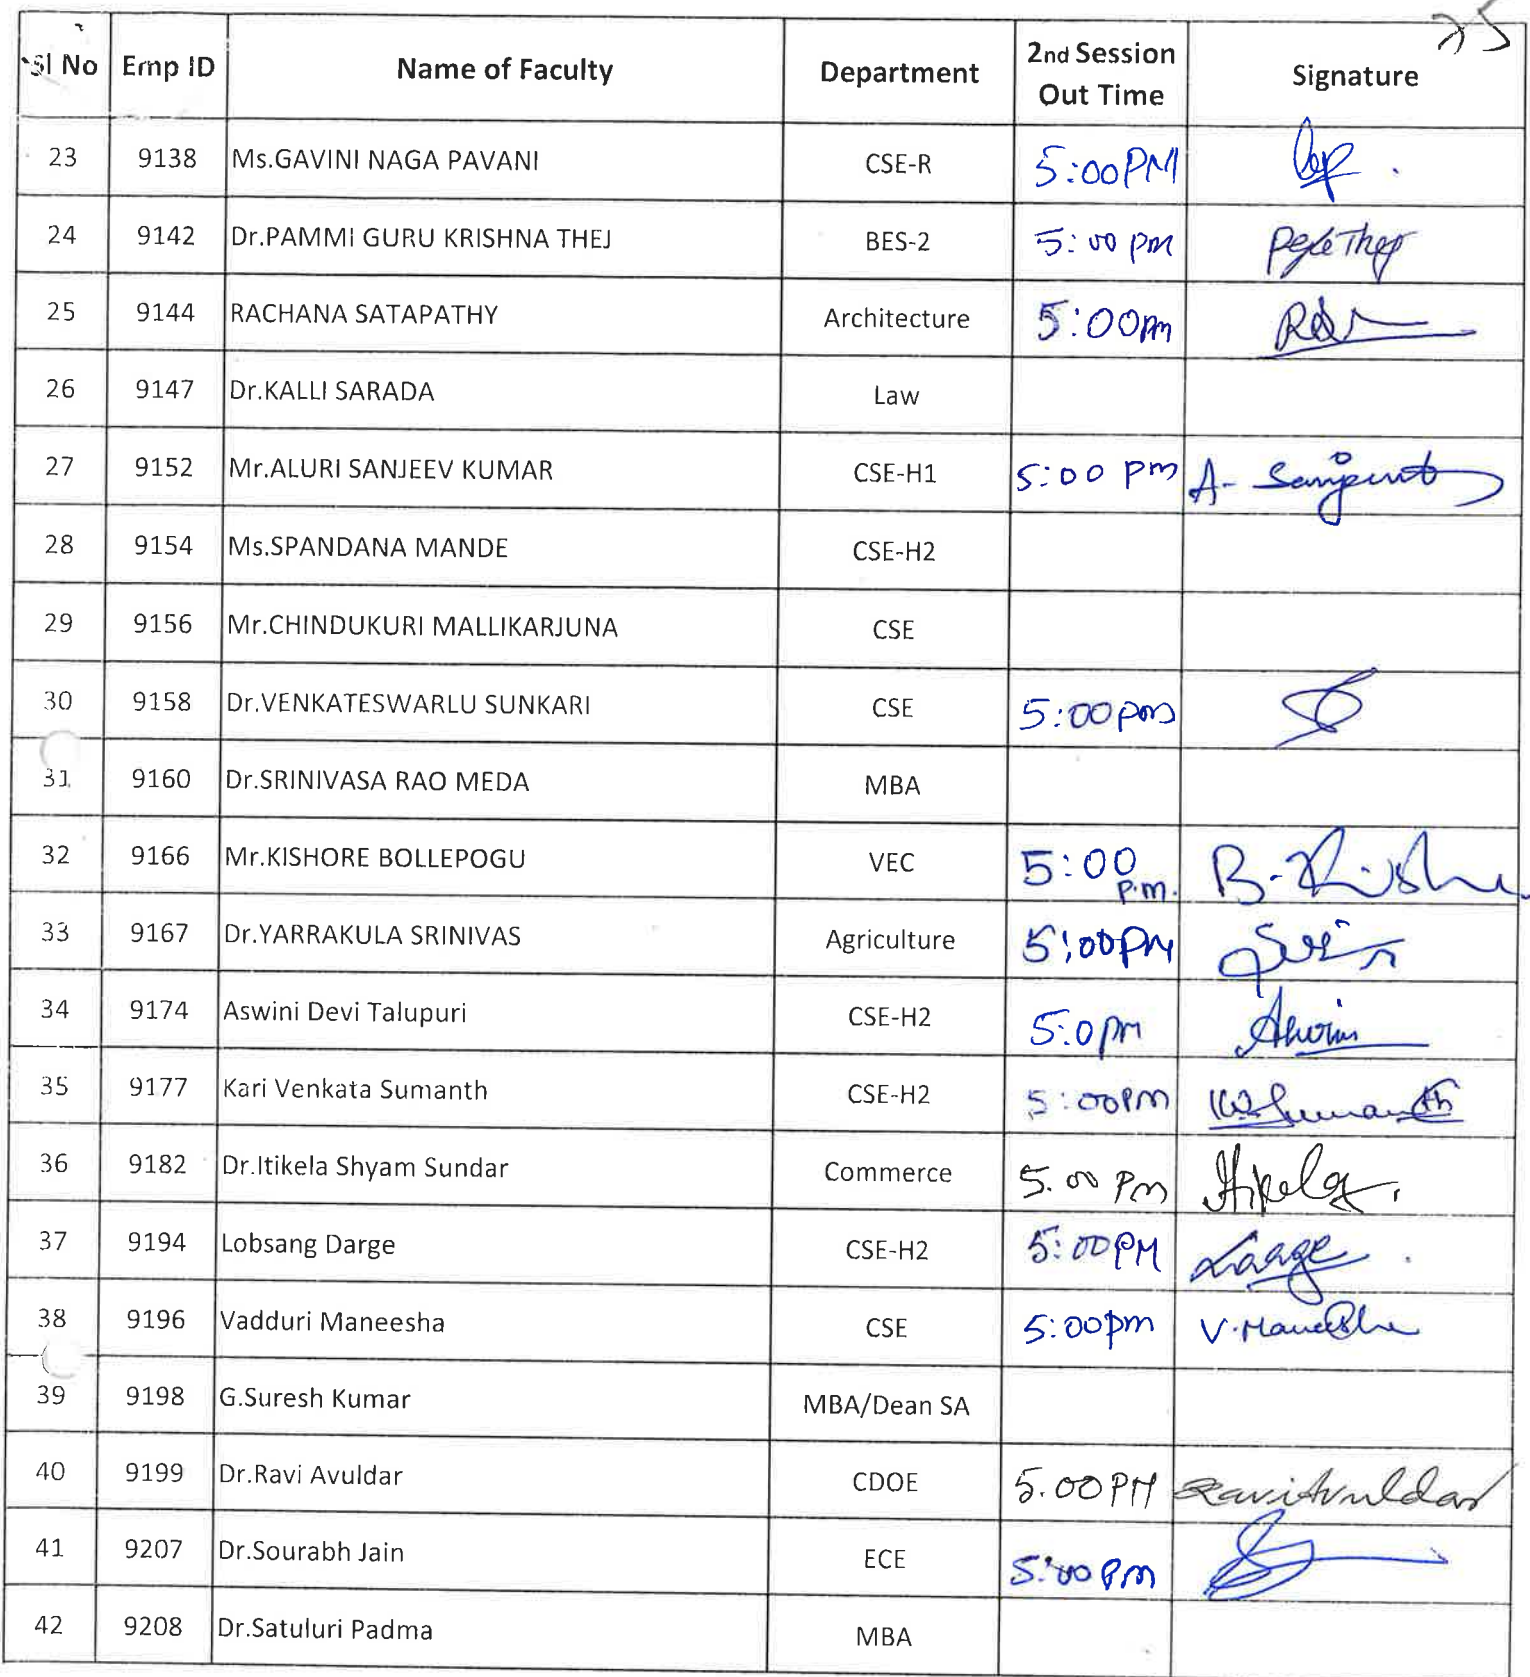 25
Sl No Emp ID Name of Faculty Department 2nd Session Out Time Signature
23 9138 Ms.GAVINI NAGA PAVANI CSE-R 5:00PM
24 9142 Dr.PAMMI GURU KRISHNA THEJ BES-2 5:00 pm
25 9144 RACHANA SATAPATHY Architecture 5:00pm
26 9147 Dr.KALLI SARADA Law
27 9152 Mr.ALURI SANJEEV KUMAR CSE-H1 5:00 pm A-
28 9154 Ms.SPANDANA MANDE CSE-H2
29 9156 Mr.CHINDUKURI MALLIKARJUNA CSE
30 9158 Dr.VENKATESWARLU SUNKARI CSE 5:00pm
31 9160 Dr.SRINIVASA RAO MEDA MBA
32 9166 Mr.KISHORE BOLLEPOGU VEC 5:00 p.m.
33 9167 Dr.YARRAKULA SRINIVAS Agriculture 5:00PM
34 9174 Aswini Devi Talupuri CSE-H2 5:0pm
35 9177 Kari Venkata Sumanth CSE-H2 5:00PM
36 9182 Dr.Itikela Shyam Sundar Commerce 5.00 Pm Itikela
37 9194 Lobsang Darge CSE-H2 5:00PM
38 9196 Vadduri Maneesha CSE 5:00pm V.Maneesha
39 9198 G.Suresh Kumar MBA/Dean SA
40 9199 Dr.Ravi Avuldar CDOE 5.00PM RaviAvuldar
41 9207 Dr.Sourabh Jain ECE 5:00 Pm
42 9208 Dr.Satuluri Padma MBA